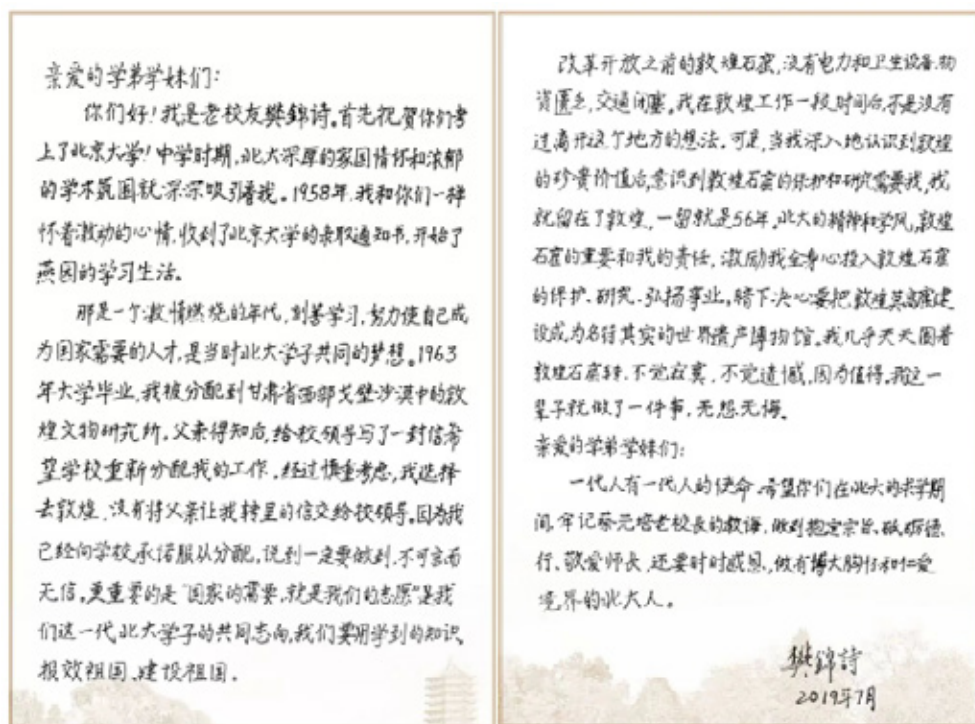 亲爱的学弟学妹们：
你们好！我是老校友樊錦诗。首先祝贺你们考
上了北京大学！中学时期，北大深厚的家国情怀和浓郁
的学术氛围就深深吸引着我。1958年，我和你们一样
怀着激动的心情，收到了北京大学的录取通知书，开始了
燕园的学习生活。
那是一个激情燃烧的年代，刻苦学习，努力使自己成
为国家需要的人才，是当时北大学子共同的梦想。1963
年大学毕业，我被分配到甘肃省西部戈壁沙漠中的敦
煌文物研究所。父亲得知后，给校领导写了一封信希
望学校重新分配我的工作。经过慎重考虑，我选择
去敦煌，没有将父亲让我转呈的信交给校领导。因为我
已经向学校承诺服从分配，说到一定要做到，不可言而
无信。更重要的是“国家的需要，就是我们的志愿”是我
们这一代北大学子的共同志向，我们要用学到的知识
报效祖国、建设祖国。
改革开放之前的敦煌石窟，没有电力和卫生设备，物
资匮乏，交通闭塞。我在敦煌工作一段时间后，不是没有
过离开这个地方的想法。可是，当我深入地认识到敦煌
的珍贵价值后，意识到敦煌石窟的保护和研究需要我，我
就留在了敦煌，一留就是56年。北大的精神和学风，敦煌
石窟的重要和我的责任，激励我全身心投入敦煌石窟
的保护、研究、弘扬事业，暗下决心要把敦煌莫高窟建
设成为名符其实的世界遗产博物馆。我几乎天天围着
敦煌石窟转，不觉寂寞，不觉遗憾，因为值得。我这一
辈子就做了一件事，无怨无悔。
亲爱的学弟学妹们：
一代人有一代人的使命。希望你们在北大的求学期
间，牢记蔡元培老校长的教诲，做到抱定宗旨、砥砺德
行、敬爱师长，还要时时感恩，做有博大胸怀和仁爱
境界的北大人。
樊錦詩
2019年7月